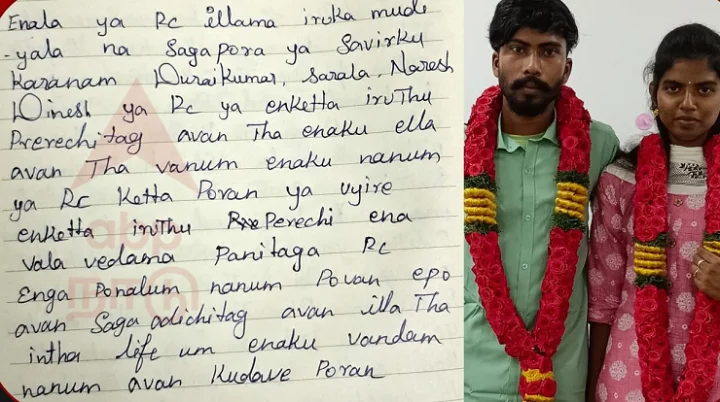 Enala ya Rc illama iruka mude
-yala na Sagapora ya Savirku
Karanam Duraikumar, Sarala, Naresh
Dinesh ya Rc ya enketta iruThu
Prerechitag avan Tha enaku ella
avan Tha vanum enaku nanum
ya Rc Ketta Poran ya uyire
enketta iniThu Perechi ena
vala vedama Panitaga Rc
Enga Ponalum nanum Povan epo
avan Saga adichitag avan illa Tha
intha life um enaku vandam
nanum avan Kudave Poran
abp
நாடு